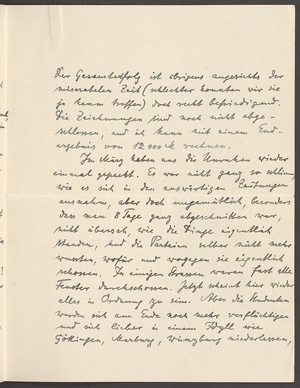 Der Gesamterfolg ist übrigens angesichts der
miserabelen Zeit (schlechter konnten wir sie
ja kaum treffen) doch recht befriedigend.
Die Zeichnungen sind noch nicht abge-
schlossen, und ich kann mit einem End-
ergebnis von 12 000 M rechnen.
Im März haben uns die Unruhen wieder
einmal gepackt. Es war nicht ganz so schlimm,
wie es sich in den auswärtigen Zeitungen
ausnahm, aber doch ungemütlich, besonders
dass man 8 Tage ganz abgeschnitten war,
nicht übersah, wie die Dinge eigentlich
standen, und die Parteien selber nicht mehr
wussten, wofür und wogegen sie eigentlich
schossen. In einigen Strassen waren fast alle
Fenster durchschossen. Jetzt scheint hier wieder
alles in Ordnung zu sein. Aber die Studenten
werden sich am Ende noch mehr verflüchtigen
und sich lieber in einem Idyll wie
Göttingen, Marburg, Würzburg niederlassen,